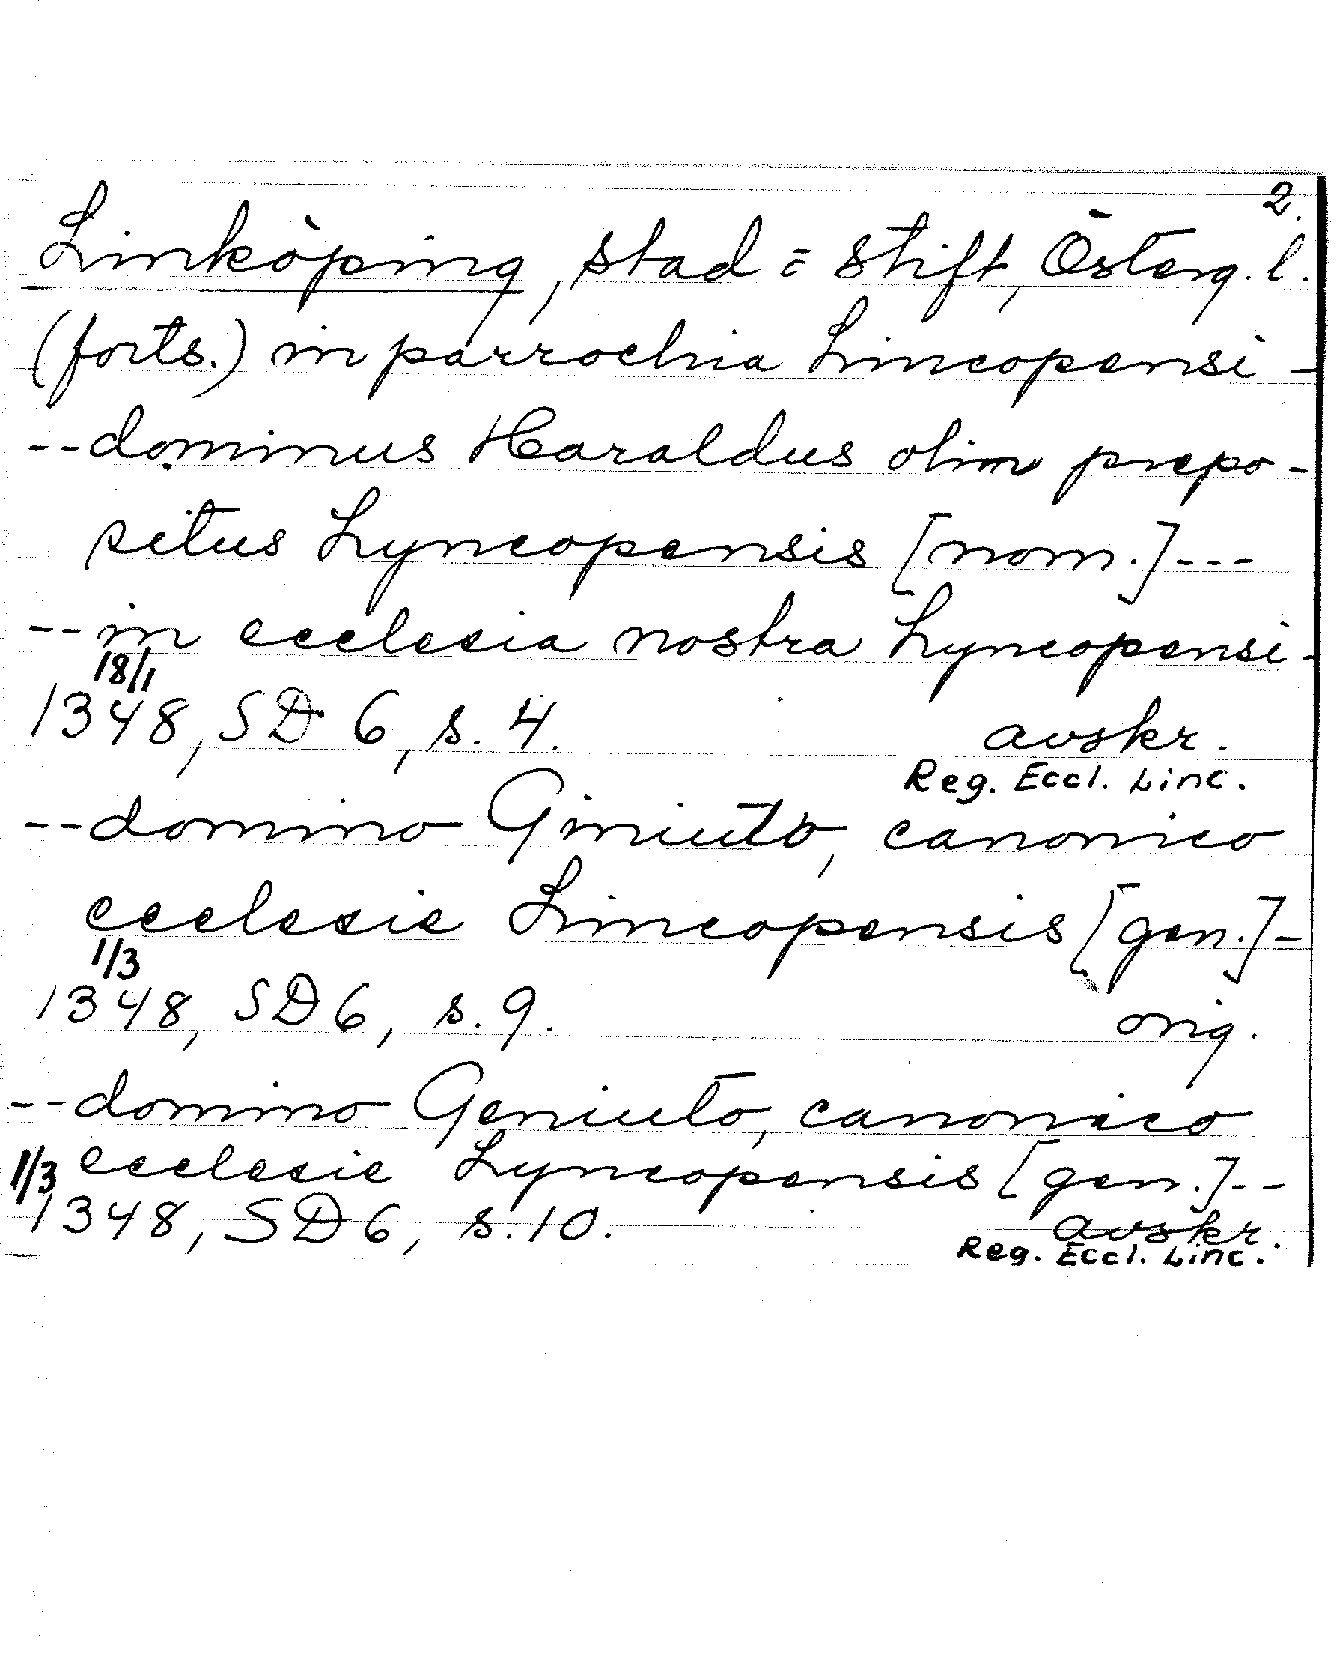 2.
Linköping, stad = stift, Österg. l.
(forts.) in parrochia Lincopensi -
-- dominus Haraldus olim prepo-
situs Lyncopensis [nom.] ---
-- in ecclesia nostra Lyncopensi -
18/1
1348, SD 6, s. 4. avskr.
Reg. Eccl. Linc.
-- domino Giniuto, canonico
ecclesie Lincopensis [gen.] -
1/3
1348, SD 6, s. 9. orig.
-- domino Geniuto, canonico
1/3 ecclesie Lyncopensis [gen.] --
1348, SD 6, s. 10. avskr.
Reg. Eccl. Linc.